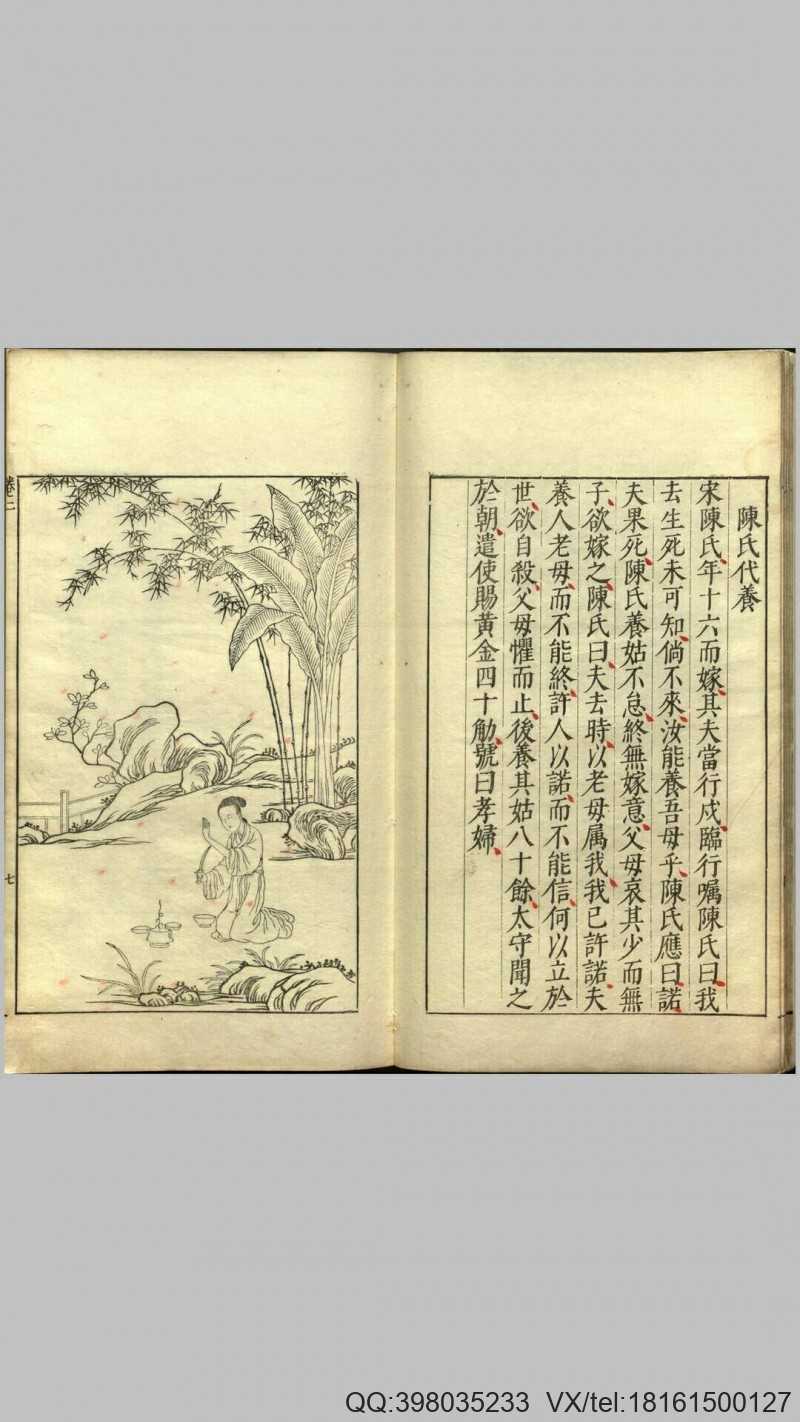 陳氏代養
宋陳氏年十六而嫁其夫當行戍臨行囑陳氏曰我
去生死未可知倘不來汝能養吾母乎陳氏應曰諾
夫果死陳氏養姑不怠終無嫁意父母哀其少而無
子欲嫁之陳氏曰夫去時以老母属我我已許諾夫
養人老母而不能終許人以諾而不能信何以立於
世欲自殺父母懼而止後養其姑八十餘太守聞之
於朝遣使賜黃金四十觔號曰孝婦
卷二
七
QQ:398035233 VX/tel:18161500127